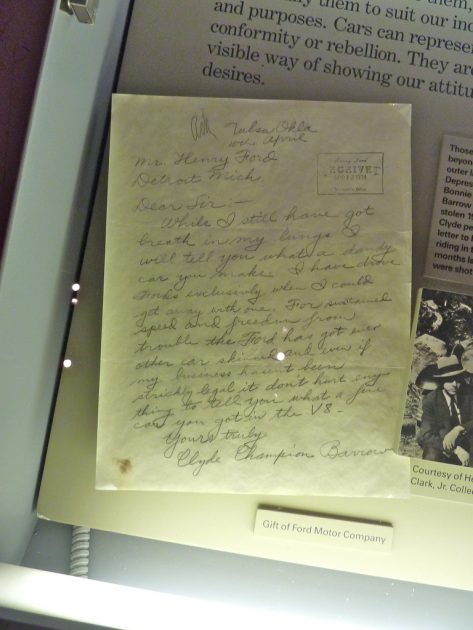 them to suit our
and purposes. Cars can represe
conformity or rebellion. They are
visible way of showing our attitu
desires.
Tulsa Okla
10th April
Mr. Henry Ford
Detroit Mich.
RECEIVED
Dear Sir:—
While I still have got
breath in my lungs I
will tell you what a dandy
car you make. I have drove
Fords exclusivly when I could
get away with one. For sustained
speed and freedom from
trouble the Ford has got ever
other car skinned and even if
my business hasen't been
strickly legal it don't hurt eny
thing to tell you what a fine
car you got in the V8 –
Yours truly
Clyde Champion Barrow
Those
beyon
outer l
Depre
Bonnie
Barrow
stolen 19
Clyde pe
letter to
riding in
months la
were shot
Courtesy of He
Clark, Jr. Collec
Gift of Ford Motor Company